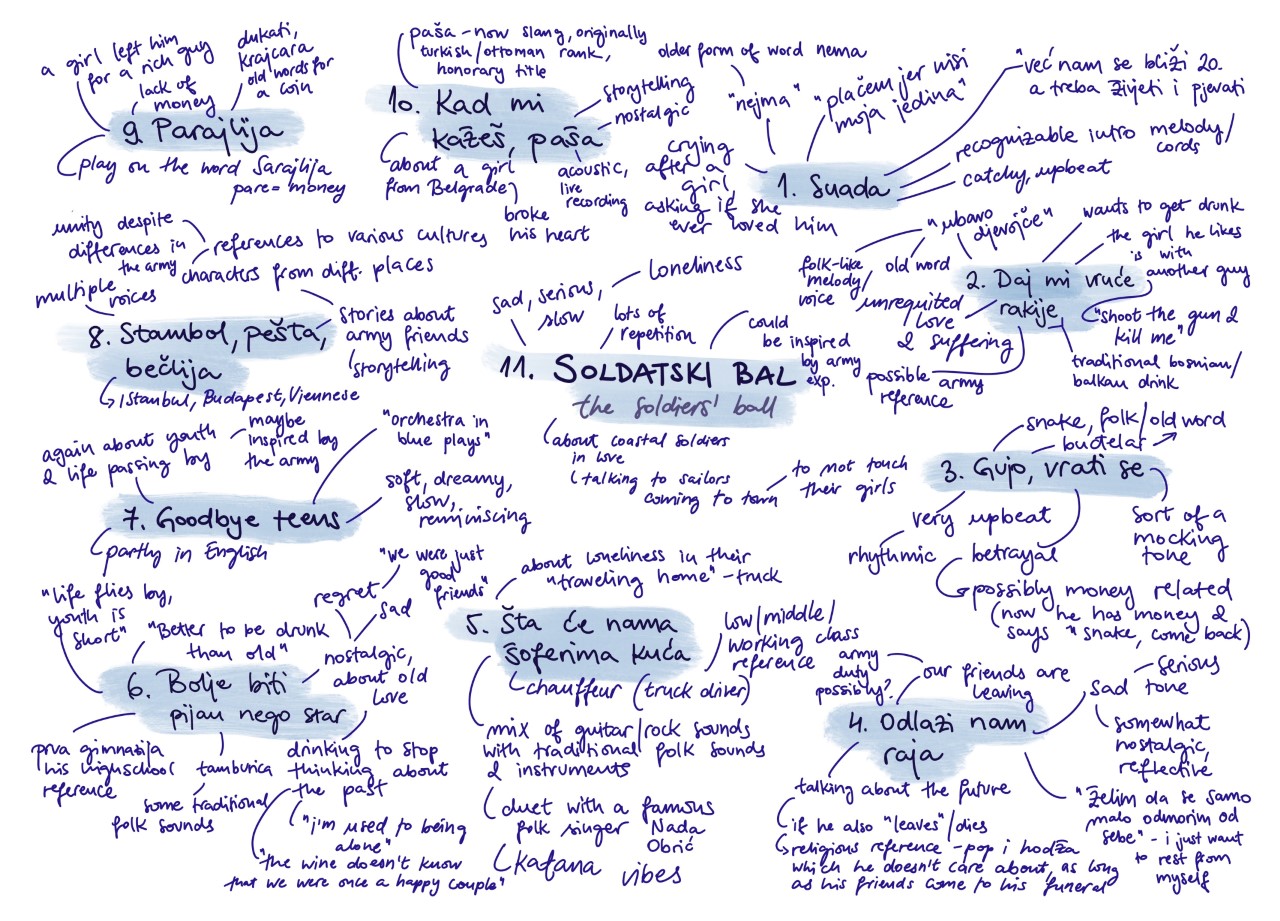 a girl left him
for a rich guy
lack of
money
dukati,
krajcara
old words for
a coin
9. Parajlija
play on the word Sarajlija
pare = money
paša - now slang, originally
turkish/ottoman rank,
honorary title
10. Kad mi
kažeš, paša
storytelling
nostalgic
about a girl
from Belgrade
broke
his heart
acoustic,
live
recording
older form of word nema
"nejma"
"plačem jer nisi
moja jedina"
"već nam se bliži 20.
a treba živjeti i pjevati
recognizable intro melody/
cords
catchy, upbeat
1. Suada
crying
after a
girl,
asking if she
ever loved him
"ubavo
djevojče"
folk-like
melody/
voice
old word
wants to get drunk
the girl he likes
is with
another guy
2. Daj mi vruće
rakije
unrequited
love
& suffering
"shoot the gun &
kill me"
traditional bosnian/
balkan drink
possible army
reference
unity despite
differences in
the army
references to various cultures
characters from diff. places
multiple
voices
8. Stambol, pešta,
bečlija
stories about
army friends
storytelling
Istanbul, Budapest, Viennese
sad, serious,
slow
loneliness
lots of
repetition
could
be inspired
by army
exp.
11. SOLDATSKI BAL
the soldiers' ball
about coastal soldiers
in love
talking to sailors
coming to town
to not touch
their girls
snake, folk/old word
budelar
3. Gujo, vrati se
very upbeat
rhythmic
betrayal
sort of a
mocking
tone
possibly money related
(now he has money &
says "snake, come back)
again about youth
& life passing by
maybe
inspired by
the army
"orchestra in
blue plays"
7. Goodbye teens
soft, dreamy,
slow,
reminiscing
partly in English
"life flies by,
youth is
short"
"Better to be drunk
than old"
regret
"we were just
good
friends"
sad
nostalgic,
about old
love
6. Bolje biti
pijan nego star
prva gimnazija
his highschool
reference
tamburica
some traditional
folk sounds
drinking to stop
thinking about
the past
"i'm used to being
alone"
"the wine doesn't know
that we were once a happy couple"
about loneliness in their
"traveling home" - truck
5. Šta će nama
šoferima kuća
low/middle/
working class
reference
chauffeur (truck driver)
mix of guitar/rock sounds
with traditional folk sounds
& instruments
duet with a famous
folk singer Nada
Obrić
kafana vibes
army
duty
possibly?
our friends are
leaving
4. Odlazi nam
raja
sad
serious
tone
somewhat
nostalgic,
reflective
talking about the future
if he also "leaves"/dies
religious reference - pop i hodža
which he doesn't care about, as long
as his friends come to his funeral
"želim da se samo
malo odmorim od
sebe" - i just want
to rest from
myself